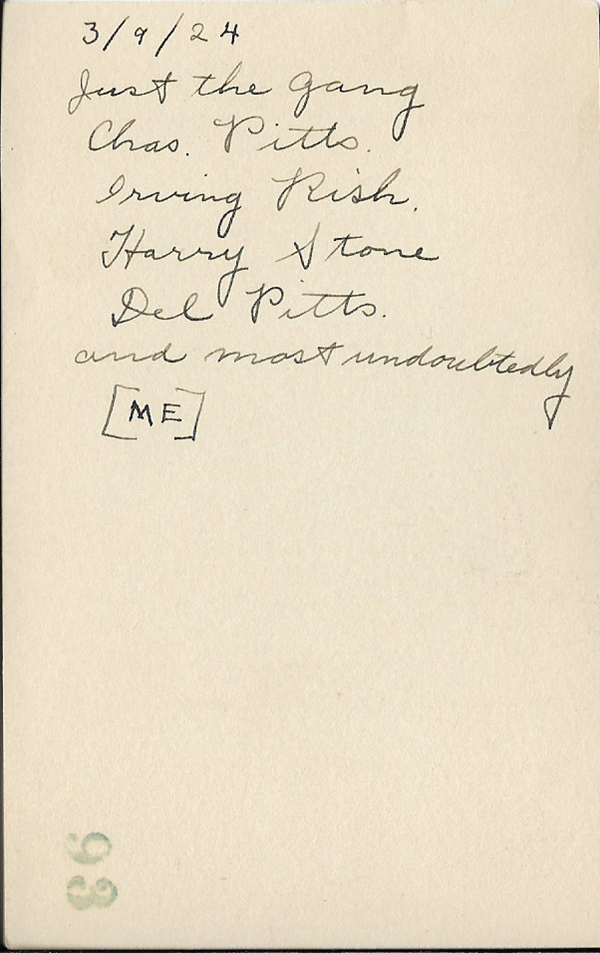 3/9/24
Just the gang
Chas. Pitts.
Irving Rish.
Harry Stone
Del Pitts.
and most undoubtedly
[ME]